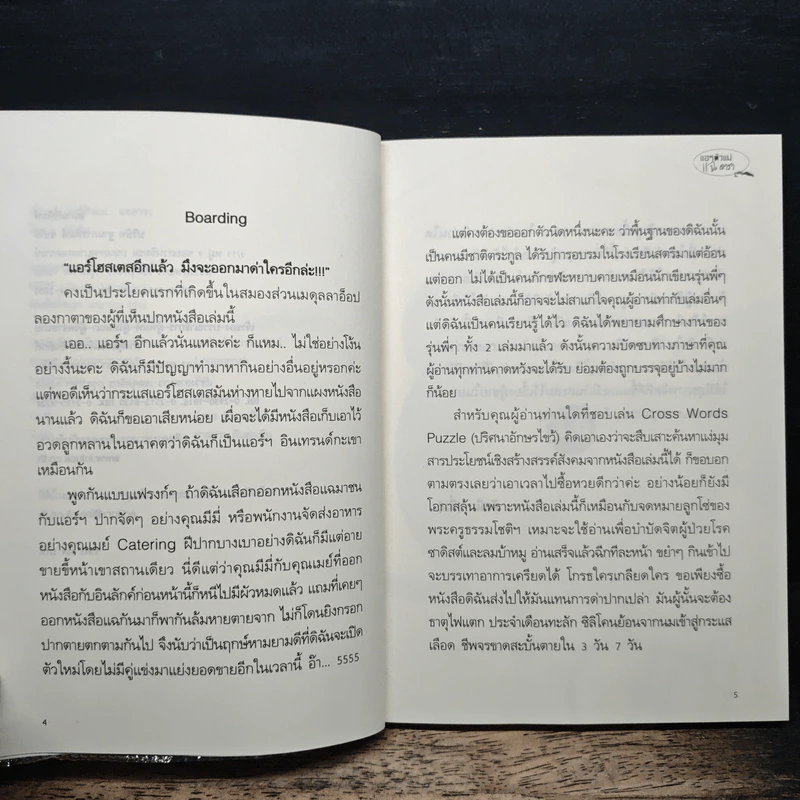 Boarding
"แอร์โฮสเตสอีกแล้ว มึงจะออกมาด่าใครอีกล่ะ!!!"
คงเป็นประโยคแรกที่เกิดขึ้นในสมองส่วนเมดุลลาอ็อป
ลองกาตาของผู้ที่เห็นปกหนังสือเล่มนี้
เออ.. แอร์ฯ อีกแล้วนั่นแหละค่ะ ก็แหม.. ไม่ใช่อย่างโง้น
อย่างงี้นะคะ ดิฉันก็มีปัญญาทำมาหากินอย่างอื่นอยู่หรอกค่ะ
แต่พอดีเห็นว่ากระแสแอร์โฮสเตสมันห่างหายไปจากแผงหนังสือ
นานแล้ว ดิฉันก็ขอเอาเสียหน่อย เผื่อจะได้มีหนังสือเก็บเอาไว้
อวดลูกหลานในอนาคตว่าดิฉันก็เป็นแอร์ฯ อินเทรนด์กะเขา
เหมือนกัน
พูดกันแบบแฟรงก์ๆ ถ้าดิฉันเสือกออกหนังสือแฉมาชน
กับแอร์ฯ ปากจัดๆ อย่างคุณมีมี่ หรือพนักงานจัดส่งอาหาร
อย่างคุณเมย์ Catering ฝีปากบางเบาอย่างดิฉันก็มีแต่อาย
ขายขี้หน้าเขาสถานเดียว นี่ดีแต่ว่าคุณมีมี่กับคุณเมย์ที่ออก
หนังสือกับอินลักค์ก่อนหน้านี้ก็หนีไปมีผัวหมดแล้ว แถมที่เคยๆ
ออกหนังสือแฉกันมาก็พากันล้มหายตายจาก ไม่ก็โดนยิงกรอก
ปากตายตกตามกันไป จึงนับว่าเป็นฤกษ์หามยามดีที่ดิฉันจะเปิด
ตัวใหม่โดยไม่มีคู่แข่งมาแย่งยอดขายอีกในเวลานี้ อ๊า... 5555
4
แต่คงต้องขอออกตัวนิดหนึ่งนะคะ ว่าพื้นฐานของดิฉันนั้น
เป็นคนมีชาติตระกูล ได้รับการอบรมในโรงเรียนสตรีมาแต่อ้อน
แต่ออก ไม่ได้เป็นคนกักขฬะหยาบคายเหมือนนักเขียนรุ่นพี่ๆ
ดังนั้นหนังสือเล่มนี้ก็อาจจะไม่สาแก่ใจคุณผู้อ่านเท่ากับเล่มอื่นๆ
แต่ดิฉันเป็นคนเรียนรู้ได้ไว ดิฉันได้พยายามศึกษางานของ
รุ่นพี่ๆ ทั้ง 2 เล่มมาแล้ว ดังนั้นความบัดซบทางภาษาที่คุณ
ผู้อ่านทุกท่านคาดหวังจะได้รับ ย่อมต้องถูกบรรจุอยู่บ้างไม่มาก
ก็น้อย
สำหรับคุณผู้อ่านท่านใดที่ชอบเล่น Cross Words
Puzzle (ปริศนาอักษรไขว้) คิดเอาเองว่าจะสืบเสาะค้นหาแง่มุม
สารประโยชน์เชิงสร้างสรรค์สังคมจากหนังสือเล่มนี้ได้ ก็ขอบอก
ตามตรงเลยว่าเอาเวลาไปซื้อหวยดีกว่าค่ะ อย่างน้อยก็ยังมี
โอกาสลุ้น เพราะหนังสือเล่มนี้ก็เหมือนกับจดหมายลูกโซ่ของ
พระครูธรรมโชติฯ เหมาะจะใช้อ่านเพื่อบำบัดจิตผู้ป่วยโรค
ซาดิสต์และลมบ้าหมู อ่านเสร็จแล้วฉีกทีละหน้า ขยำๆ กินเข้าไป
จะบรรเทาอาการเครียดได้ โกรธใครเกลียดใคร ขอเพียงซื้อ
หนังสือดิฉันส่งไปให้มันแทนการด่าปากเปล่า มันผู้นั้นจะต้อง
ธาตุไฟแตก ประจำเดือนทะลัก ซิลิโคนย้อนจากนมเข้าสู่กระแส
เลือด ชีพจรขาดสะบั้นตายใน 3 วัน 7 วัน
5